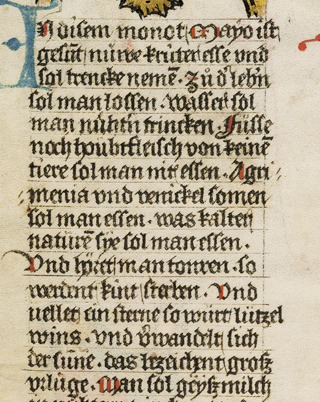 In disem monot Mayo ist
gesūt nüwe krüter esse vnd
sol trencke nemē · Zů d' lebn
sol man lossen · wasser sol
man nütʒtn trincken · Füsse
noch houbtfleisch von keinē
tiere sol man nit essen · Agri
menia vnd venickel somen
sol man essen · was kalter
naturē sye sol man essen ·
Vnd höret man tonren · so
werdent kint sterben · Vnd
vellet ein sterne so würt lützel
wins · vnd v̄wandelt sich
der sūne · das bezeichent grosz
vrlüge · Man sol geysz milch